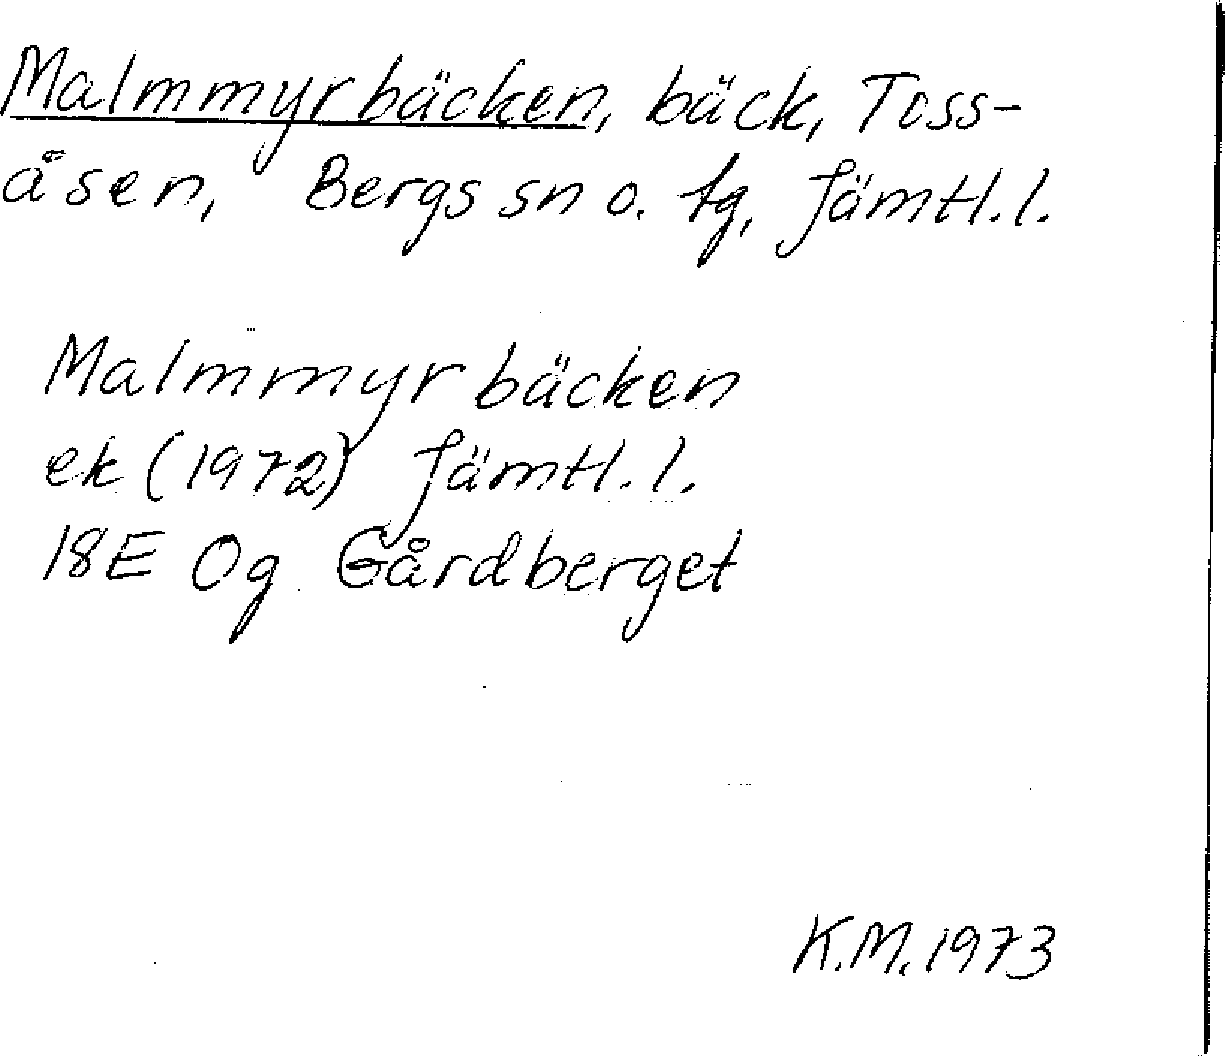 Malmmyrbäcken, bäck, Toss-
åsen, Bergs sn o. tg, Jämtl. l.
Malmmyrbäcken
ek (1972) Jämtl. l.
18E 0g Gårdberget
K.M. 1973